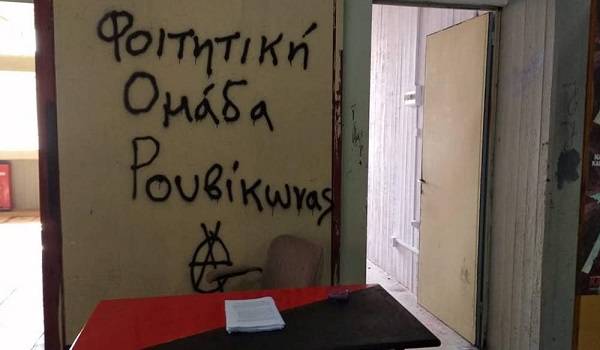 Φοιτητική
Ομάδα
Ρουβίκωνας